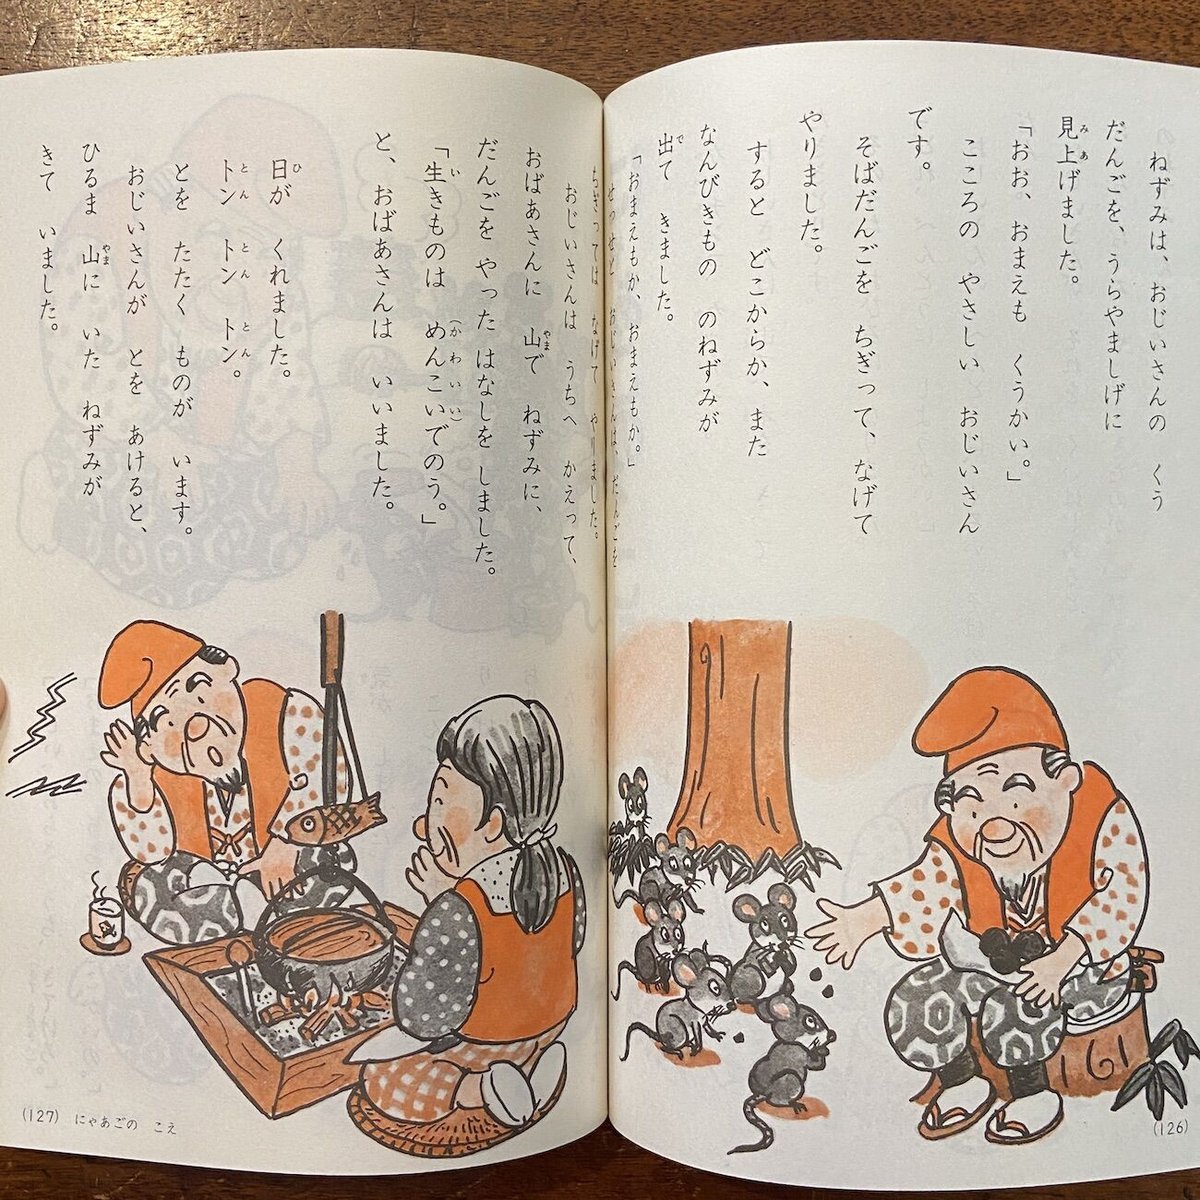 ねずみは、おじいさんの くう
だんごを、うらやましげに
みあ
見上げました。
「おお、おまえも くうかい。」
こころの やさしい おじいさん
です。
そばだんごを ちぎって、なげて
やりました。
すると どこからか、また
なんびきもの のねずみが
で
出て きました。
「おまえもか、おまえもか。」
せっせと おじいさんは、だんごを
(126)
ちぎっては なげて やりました。
おじいさんは うちへ かえって、
やま
おばあさんに 山で ねずみに、
だんごを やった はなしを しました。
い (かわいい)
「生きものは めんこいでのう。」
と、おばあさんは いいました。
ひ
日が くれました。
とん とん とん
トン トン トン。
とを たたく ものが います。
おじいさんが とを あけると、
やま
ひるま 山に いた ねずみが
きて いました。
(127) にゃあごの こえ